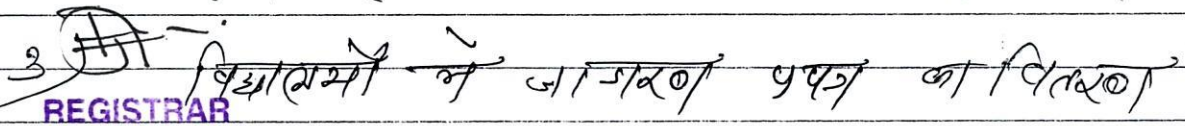 3 विद्यालयों में जागरण प्रपत्र का वितरण
REGISTRAR